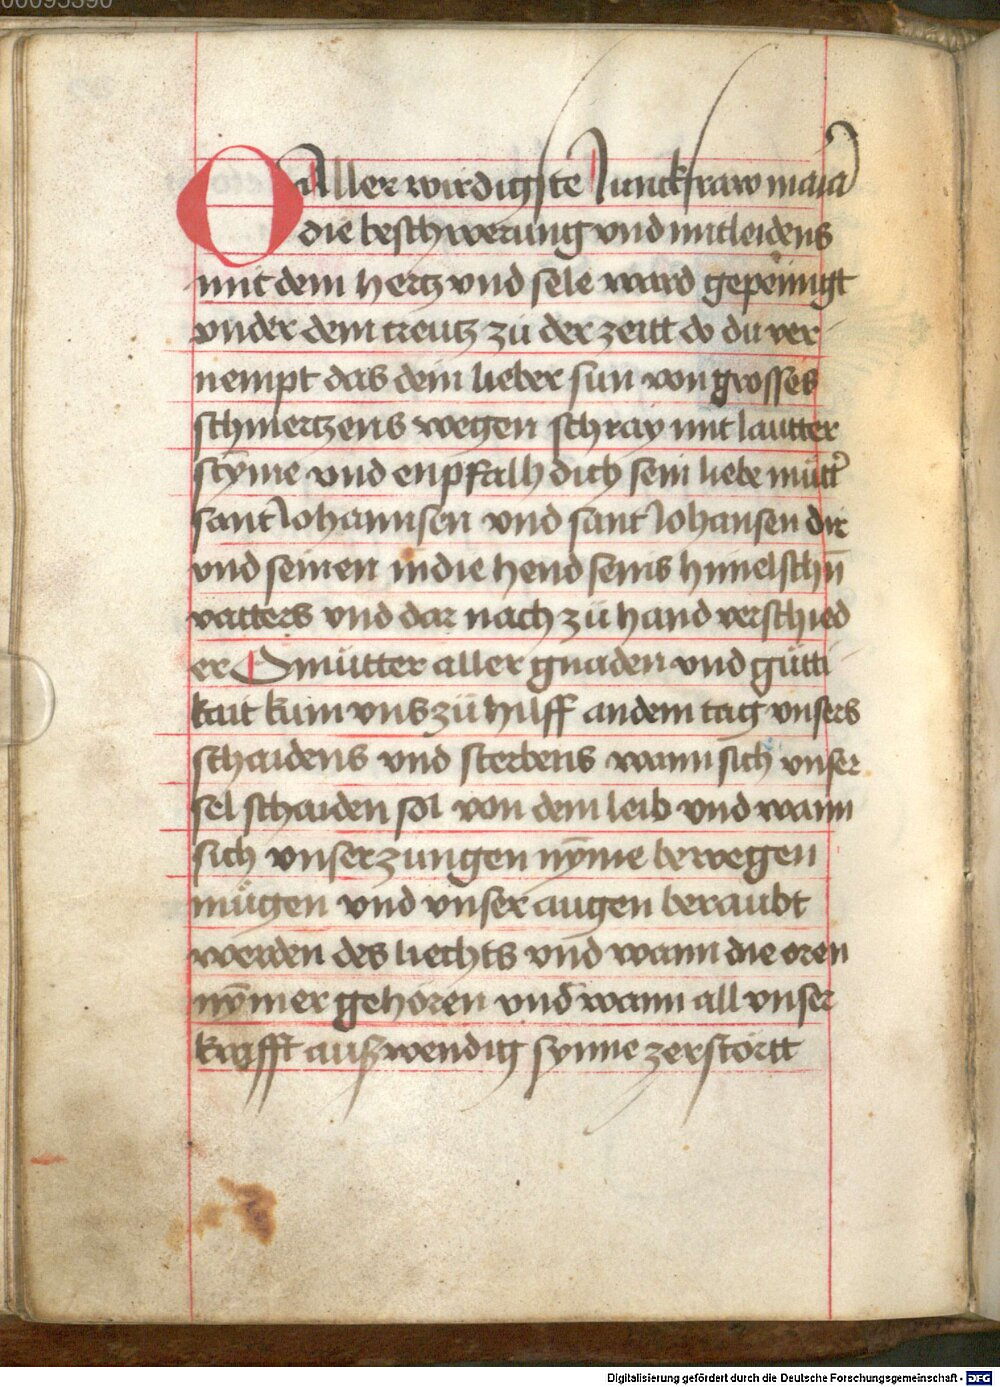 00095390
O Aller wirdigste Junckfraw maria
die beschwerung vnd mitleidens
mit dem hertz vnd sele ward gepeinigt
vnder dem creutz zů der zeitt do du ver-
nempt das dein lieber sun von grosses
schmertzens wegen schray mit lautter
stȳme vnd enpfalh dich sein liebe můtt̉
sant Johannsen vnd sant Johansen dir
vnd seinen in die hend seins himelschn̄
vatters vnd dar nach zů hand verschied
er O můtter aller gnaden vnd gütti-
kait kum vns zů hilff an dem tag vnsers
schaidens vnd sterbens wann sich vnser
sel schaiden sol von dem leib vnd wann
sich vnser zungen nȳme bewegen
mügen vnd vnser augen beraubt
werden des liechts vnd wann die oren
nȳmer gehören vnd wann all vnser
krafft außwendig synne zerstörtt
Digitalisierung gefördert durch die Deutsche Forschungsgemeinschaft - DFG